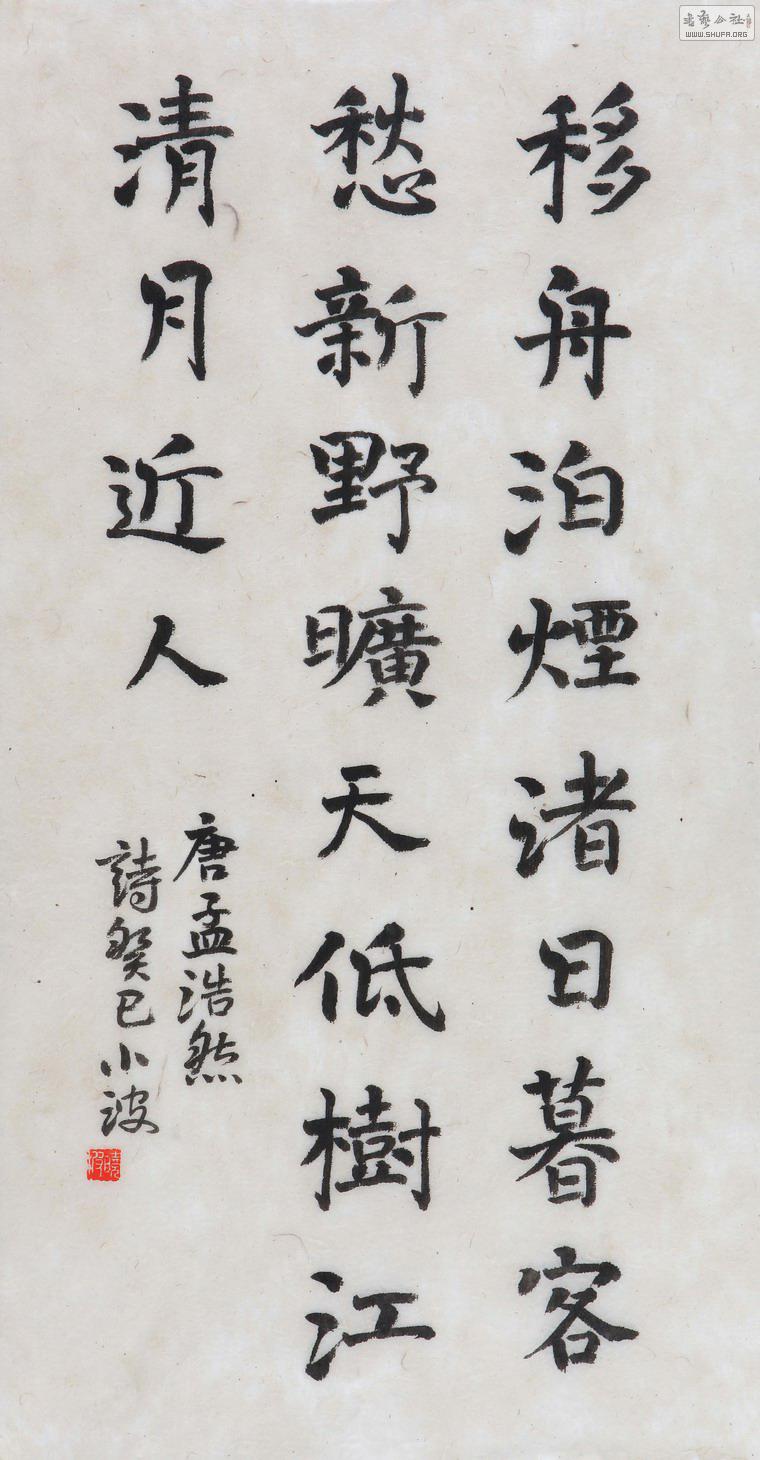 移舟泊煙渚日暮客
愁新野曠天低樹江
清月近人
唐孟浩然
詩癸巳小波
WWW.SHUFA.ORG